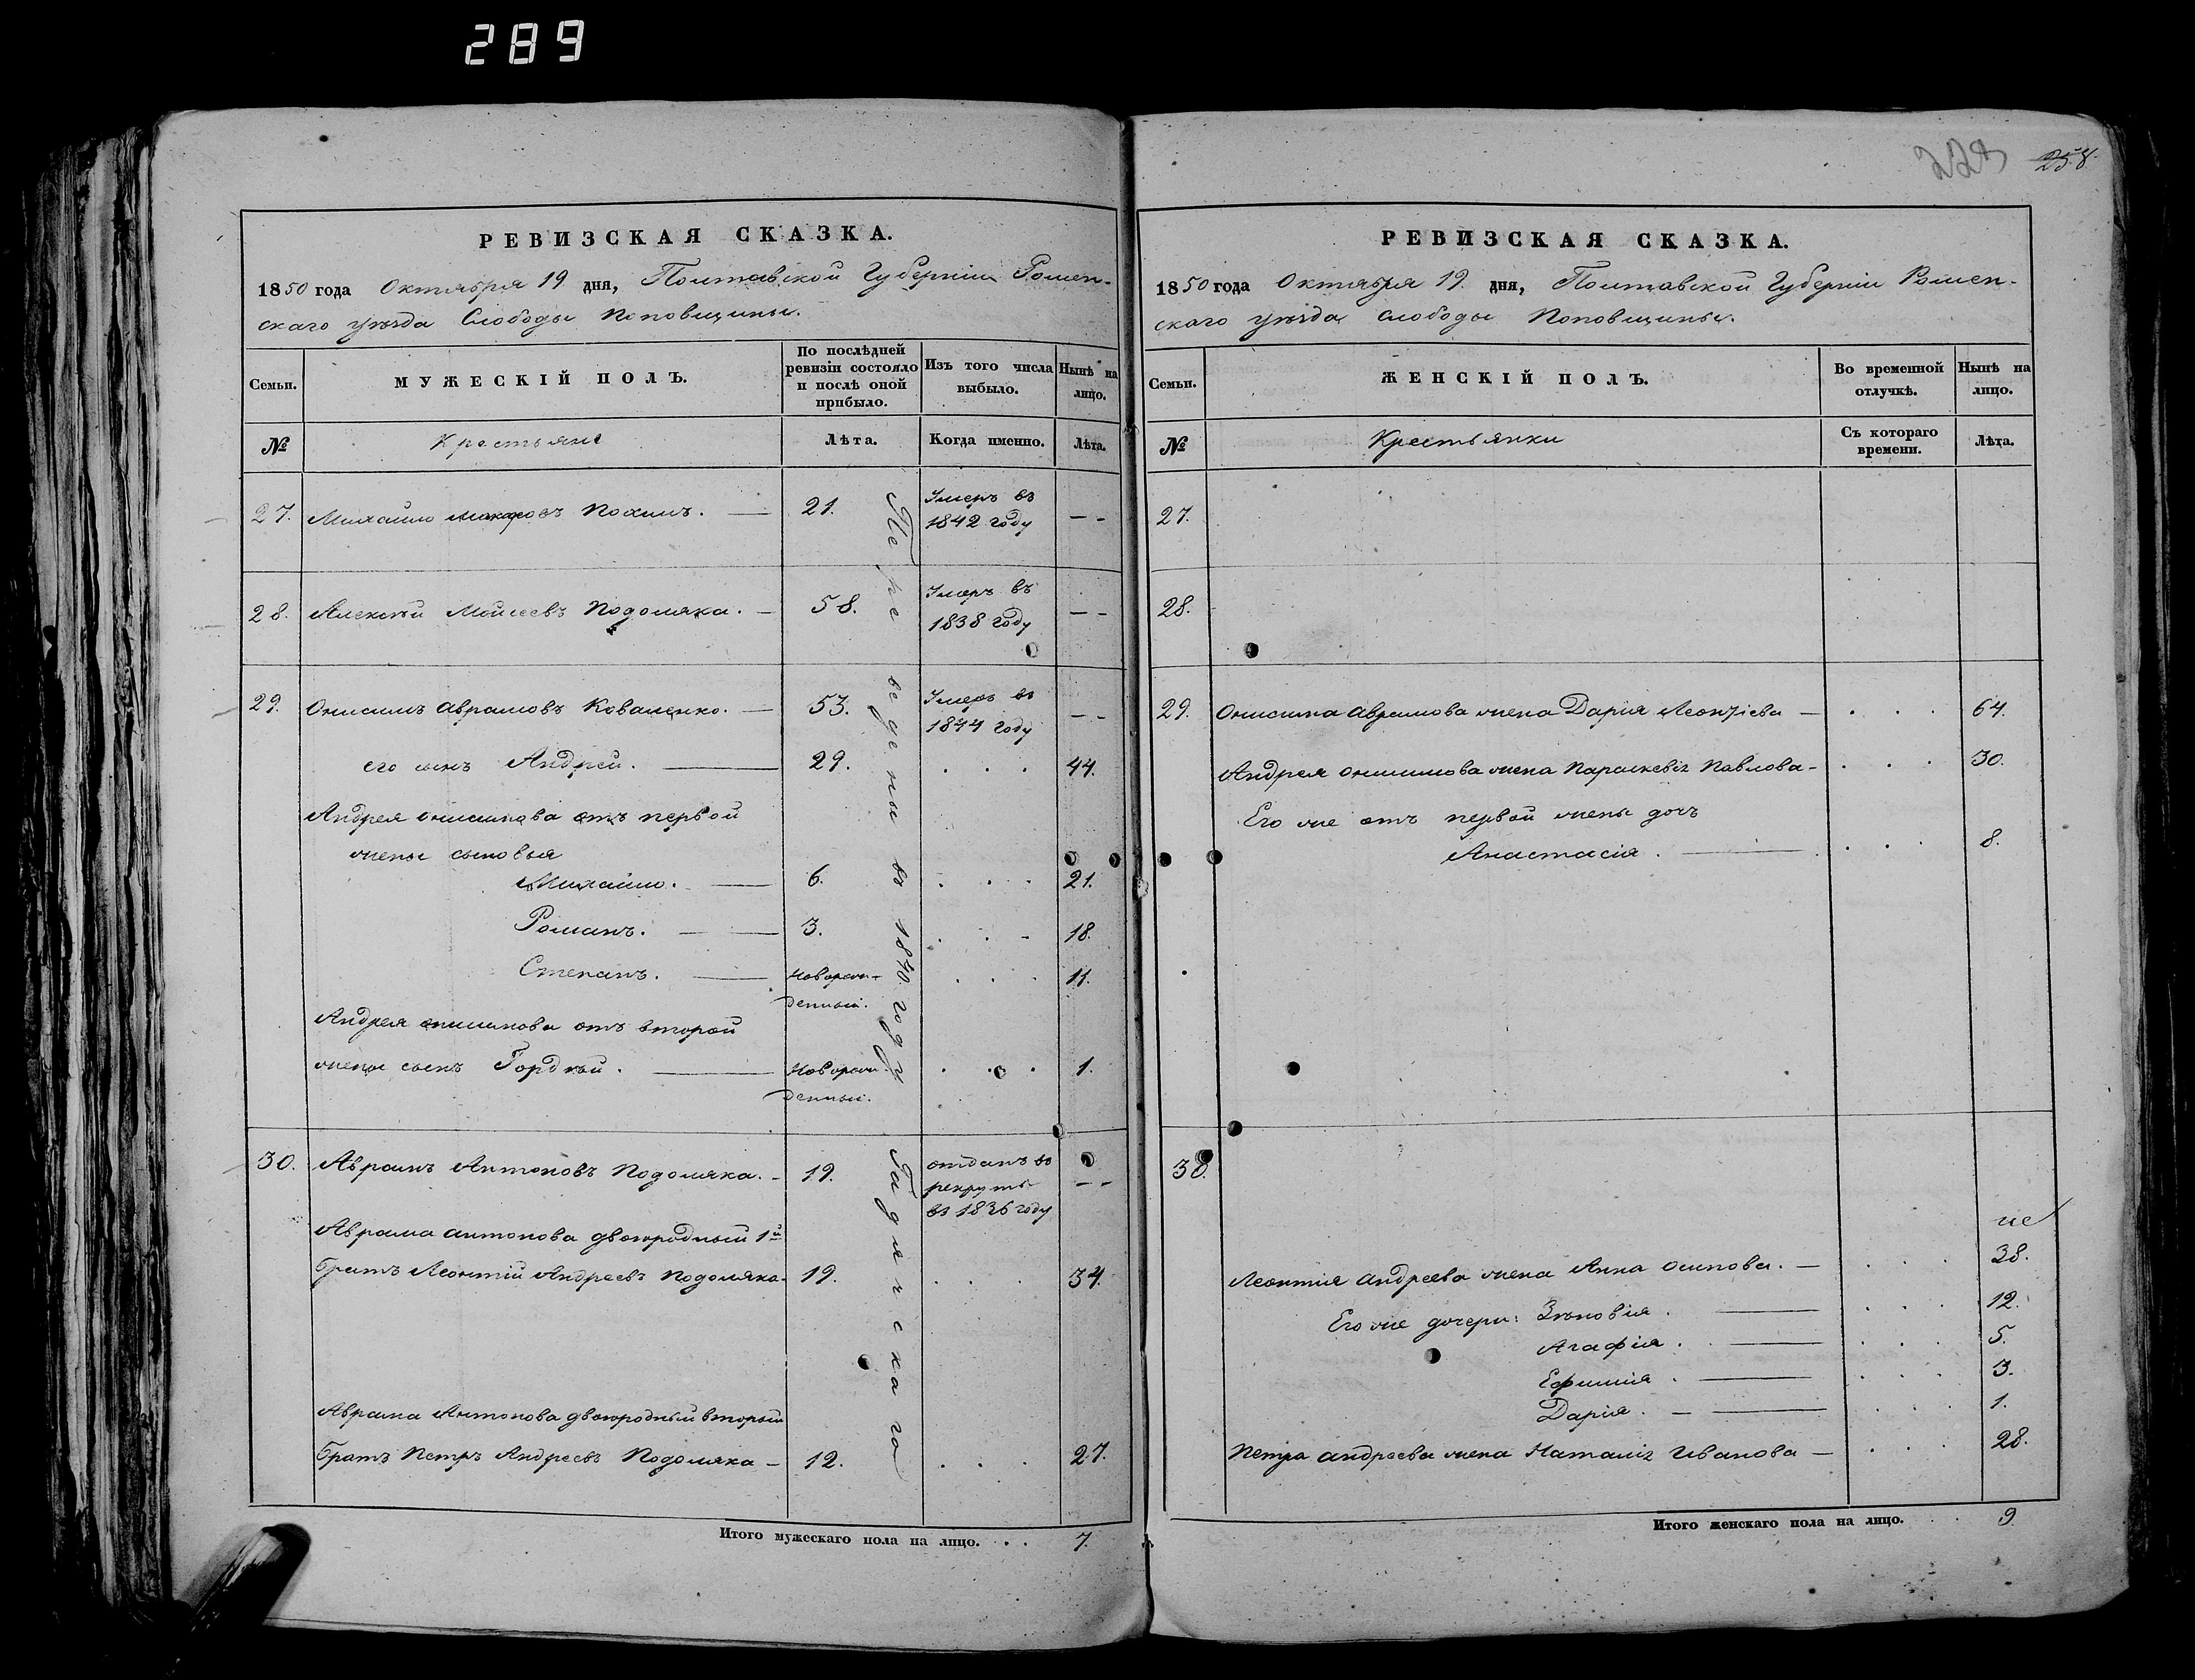 289
229 258.
РЕВИЗСКАЯ СКАЗКА.
1850 года Октября 19 дня, Полтавской Губерніи Ромен-
скаго уѣзда Слободы Поповщины.
Семьи.
МУЖЕСКІЙ ПОЛЪ.
По послѣдней ревизіи состояло и послѣ оной прибыло.
Изъ того числа выбыло.
Нынѣ на лицо.
№
Крестьяне
Лѣта.
Когда именно.
Лѣта.
27. Михайло Макаровъ Похилъ. — 21. Умеръ въ 1842 году — -
28. Алексѣй Моисеевъ Подоляка. — 58. Умеръ въ 1838 году — -
29. Онисимъ Аврамовъ Коваленко. — 53. Умеръ въ 1844 году — -
его сынъ Андрей. — 29. . . . 44.
Андрея Онисимова отъ первой
жены сыновья
Михайло. — 6. . . . 21.
Романъ. — 3. . . - 18.
Степанъ. — Новорож-денный. . . . 11.
Андрея Онисимова отъ второй
жены сынъ Гордѣй. — Новорож-денный. . . . 1.
30. Аврамъ Антоновъ Подоляка. - 19. отданъ въ рекруты въ 1836 году — -
Аврама Антонова двоюродный 1й
братъ Леонтій Андреевъ Подоляка- 19. . . . 34.
Аврама Антонова двоюродный вторый
братъ Петръ Андреевъ Подоляка — 12. . . . 27.
Переведены въ 1840 году Гадячскаго
Итого мужескаго пола на лицо. . . 7.
РЕВИЗСКАЯ СКАЗКА.
1850 года Октября 19. дня, Полтавской Губерніи Ромен-
скаго уѣзда Слободы Поповщины.
Семьи.
ЖЕНСКІЙ ПОЛЪ.
Во временной отлучкѣ.
Нынѣ на лицо.
№
Крестьянки
Съ котораго времени.
Лѣта.
27.
28.
29. Онисима Аврамова жена Дарія Леонтіева — . . . 64.
Андрея Онисимова жена Параскевія Павлова - . . . 30.
Его же отъ первой жены дочь
Анастасія. — . . . 8.
30.
Леонтія Андреева жена Анна Осипова. — . . . 38.
Его же дочери: Зѣновія. — . . . 12.
Агафія. — . . . 5.
Ефимія. — . . . 3.
Дарія. — . . . 1.
Петра Андреева жена Наталія Иванова — . . . 28.
Итого женскаго пола на лицо. . . 9